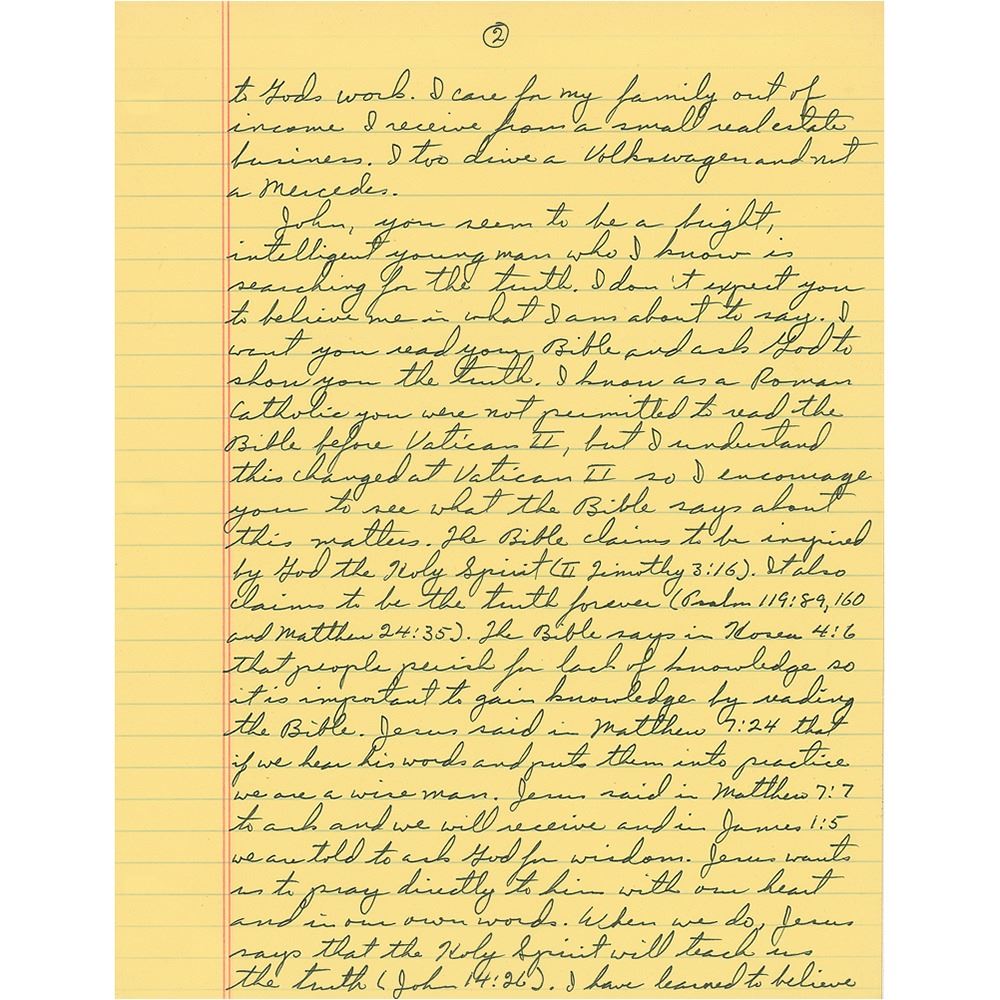 2
to Gods work. I care for my family out of
income I receive from a small real estate
business. I too drive a Volkswagen and not
a Mercedes.
John, you seem to be a bright,
intelligent young man who I know is
searching for the truth. I don't expect you
to believe me in what I am about to say. I
want you read your Bible and ask God to
show you the truth. I know as a Roman
Catholic you were not permitted to read the
Bible before Vatican II, but I understand
this changed at Vatican II so I encourage
you to see what the Bible says about
this matters. The Bible claims to be inspired
by God the Holy Spirit (II Timothy 3:16). It also
claims to be the truth forever (Psalm 119:89,160
and Matthew 24:35). The Bible says in Hosea 4:6
that people perish for lack of knowledge so
it is important to gain knowledge by reading
the Bible. Jesus said in Matthew 7:24 that
if we hear his words and puts them into practice
we are a wise man. Jesus said in Matthew 7:7
to ask and we will receive and in James 1:5
we are told to ask God for wisdom. Jesus wants
us to pray directly to him with our heart
and in our own words. When we do, Jesus
says that the Holy Spirit will teach us
the truth (John 14:26). I have learned to believe